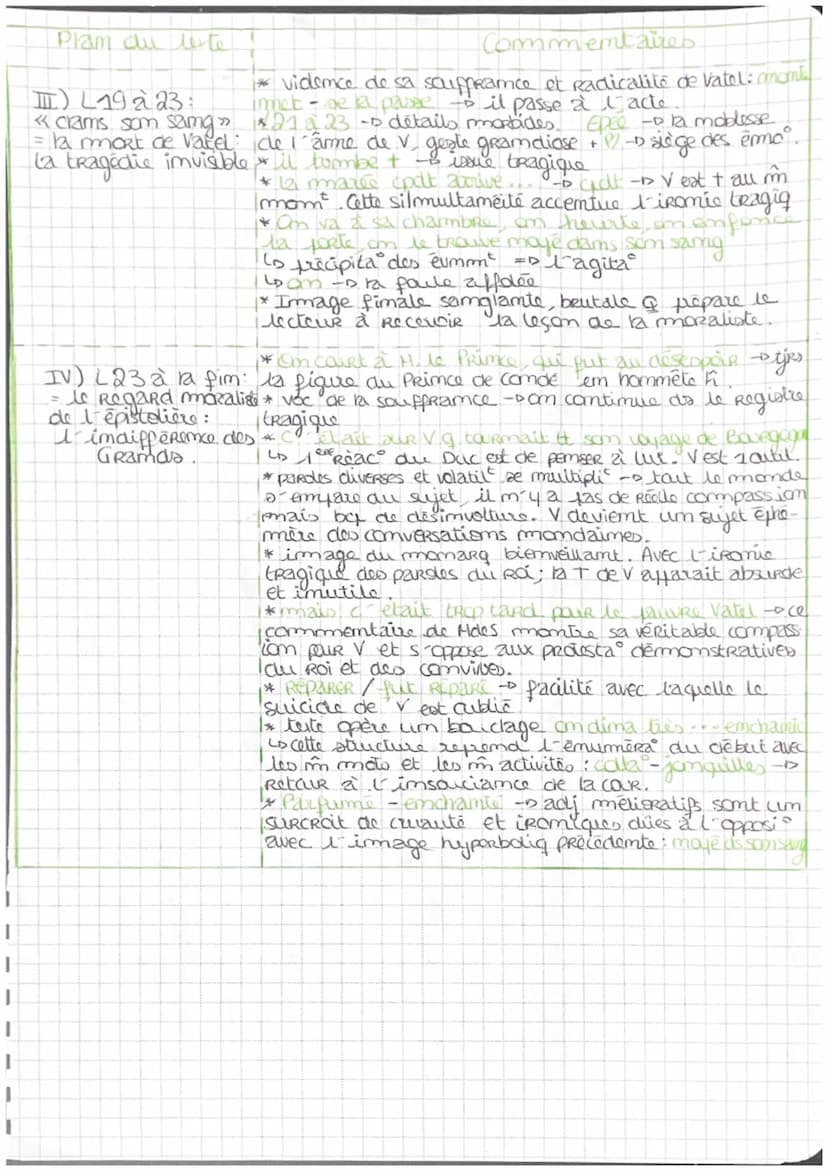 Plan du texte
Commentaires
III) L19 à 23:
« dans son sang »
= la mort de Vatel:
la tragédie invisible
* vidence de sa souffrance et Radicalité de Vatel: monte
met - se la passe → il passe à l'acte.
* 21 à 23 → détails morbides. Epée → la noblesse
de l'âme de V, geste grandiose + ♡ → siège des émo°.
* il tombe + → issue tragique
* La marée cpdt arrive... → cpdt → V est + au m̂
momt. Cette silmultaméité accentue l'ironie tragiq
* On va à sa chambre, on heurte, on enfonce
la porte, on le trouve noyé dans son sang
↳ précipita° des évnmt => l'agita°
↳ on → la foule affolée
* Image finale sanglante, brutale Q prépare le
lecteur à Recevoir la leçon de la moraliste.
IV) L23 à la fin:
= le Regard moraliste
de l'épistolière:
l'indifférence des
Grands.
* On court à M. le Prince, qui fut au désespoir → tjrs
la figure du Prince de Condé en honnête h̄.
* voc de la souffrance → on continue ds le Registre
tragique
* C'était sur V q tournait tt son voyage de Bourgogne
↳ 1ère Réac° du Duc est de penser à lui. V est 1 outil.
* paroles diverses et volatilt se multiplit → tout le monde
s'empare du sujet, il n'y a pas de Réelle compassion
mais bcp de désinvolture. V devient un sujet éphé-
mère des conversations mondaines.
* image du monarq bienveillant. Avec l'ironie
tragique des paroles du Roi; la + de V apparait absurde
et inutile.
* mais c'était trop tard pour le pauvre Vatel → ce
commentaire de Mdes montre sa véritable compass
ion pour V et s'oppose aux protesta° démonstratives
du Roi et des convives.
* RÉPARER / fut Réparé → facilité avec laquelle le
suicide de V est oublié
* texte opère un bouclage on dina très ... enchanté
↳ cette structure reprend l'énuméra° du début avec
les m̂ mots et les m̂ activités : colla° - jonquilles →
Retour à l'insouciance de la cour.
* Parfumé - enchanté → adj mélioratifs sont un
surcroit de cruauté et ironiques dûes à l'opposi°
avec l'image hyperboliq précédente : noyé ds son sang